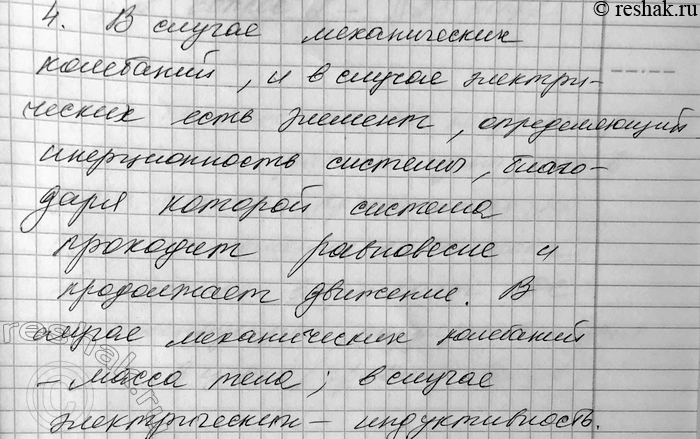 © reshak.ru
4. В случае механических
колебаний, и в случае электри-
ческих есть элемент, определяющий
инерционность системы, благо-
даря которой система
проходит равновесие и
продолжает движение. В
случае механических колебаний
- масса тела; в случае
электрических - индуктивность.
reshak.ru